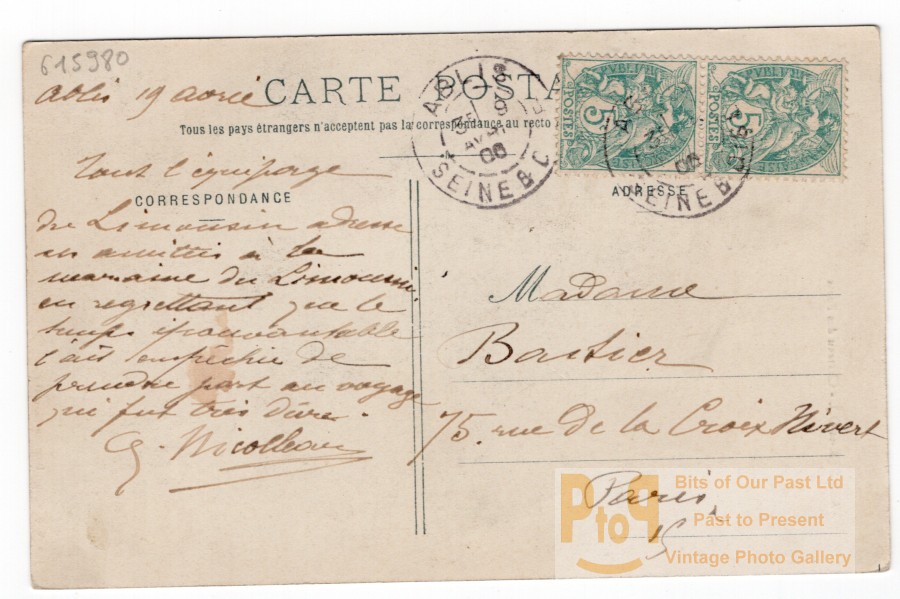 615980
CARTE POSTA
Ablis 19 avril
Tous les pays étrangers n'acceptent pas la correspondance au recto
ABLIS
AVRIL
06
SEINE & O
RÉPUBLIQUE
POSTES
5
5
POSTES
SEINE & O
Tout l'équipage
CORRESPONDANCE
du Limousin adresse
ses amitiés à la
marraine du Limousin
en regrettant que le
temps épouvantable
l'ait empêchée de
prendre part au voyage
qui fut très dure.
G. Nicolleau
ADRESSE
Madame
Bastier
75. rue de la Croix Nivert
Paris
15
PtoP
Bits of Our Past Ltd
Past to Present
Vintage Photo Gallery